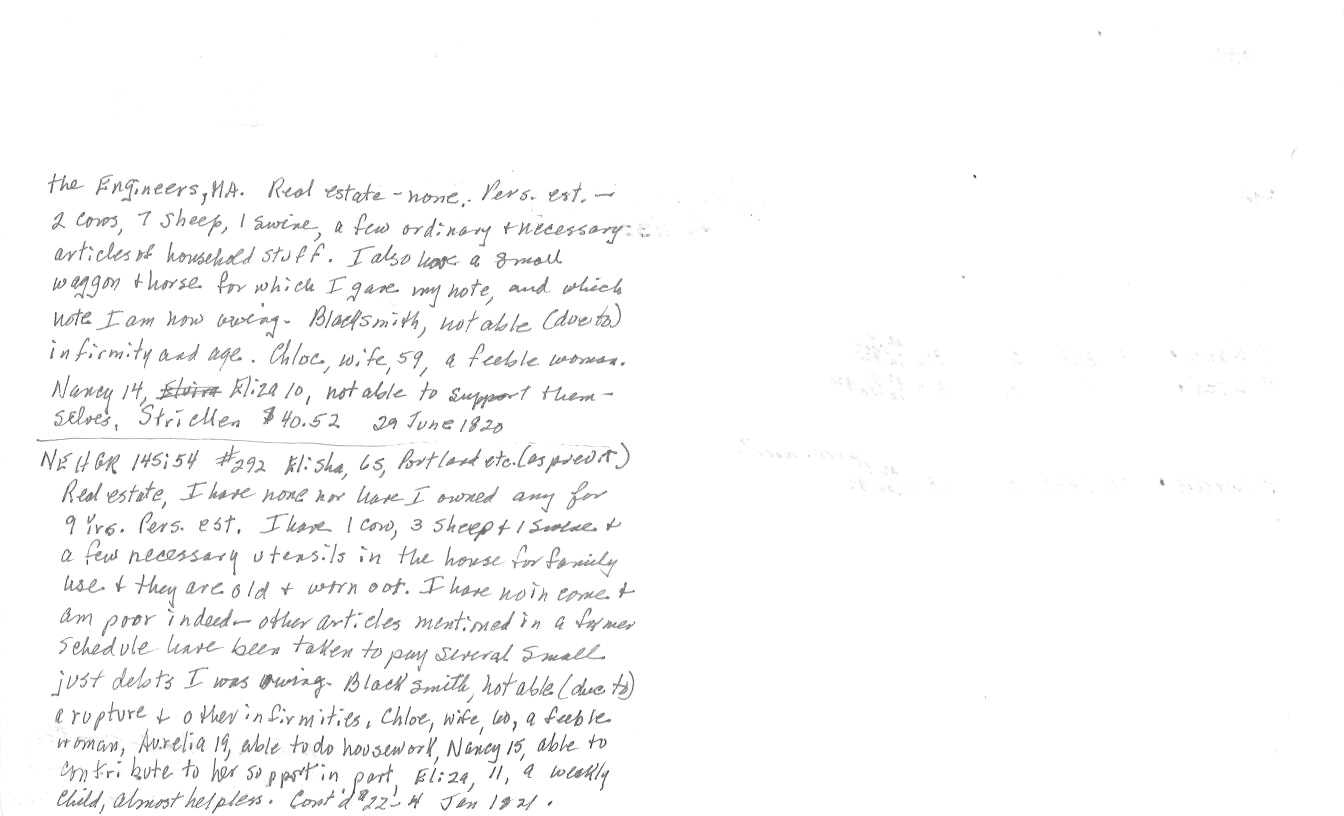 the Engineers, MA. Real estate - none. Pers. est. -
2 cows, 7 sheep, 1 swine, a few ordinary + necessary
articles of household stuff. I also have a small
waggon + horse for which I gave my note, and which
note I am now owing - Blacksmith, not able (due to)
infirmity and age. Chloe, wife, 59, a feeble woman.
Nancy 14, Elvira Eliza 10, not able to support them-
selves. Stricken $40.52 29 June 1820
NEHGR 145:54 #292 Elisha, 65, Portland etc. (as prev)
Real estate, I have none nor have I owned any for
9 yrs. Pers. est. I have 1 cow, 3 sheep + 1 swine +
a few necessary utensils in the house for family
use + they are old + worn out. I have no income +
am poor indeed - other articles mentioned in a former
schedule have been taken to pay several small
just debts I was owing - Blacksmith, not able (due to)
a rupture + other infirmities. Chloe, wife, 60, a feeble
woman, Aurelia 19, able to do housework, Nancy 15, able to
contribute to her support in part, Eliza, 11, a weakly
child, almost helpless. Cont'd 4 Jan 1821.